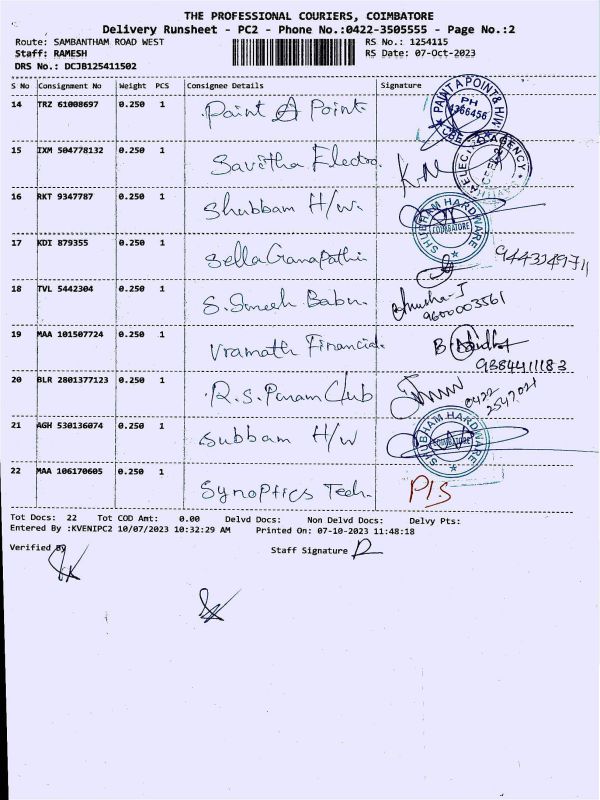 THE PROFESSIONAL COURIERS, COIMBATORE
Delivery Runsheet - PC2 - Phone No.:0422-3505555 - Page No.:2
Route: SAMBANTHAM ROAD WEST RS No.: 1254115
Staff: RAMESH RS Date: 07-Oct-2023
DRS No.: DCJB125411502
S No Consignment No Weight PCS Consignee Details Signature
14 TRZ 61008697 0.250 1 Paint A Point PAINT A POINT & H/W PH 4366456
15 IXM 504778132 0.250 1 Savitha Electro. AGENCY
16 RKT 9347787 0.250 1 Shubbam H/W. SHUBHAM HARDWARE COIMBATORE
17 KDI 879355 0.250 1 Sella Ganapathi
18 TVL 5442304 0.250 1 S. Suresh Babu. 9600003561
19 MAA 101507724 0.250 1 Vramath Financial. 9384411183
20 BLR 2801377123 0.250 1 R.S. Puram Club 0422
21 AGH 530136074 0.250 1 Subbam H/W SHUBHAM HARDWARE COIMBATORE
22 MAA 106170605 0.250 1 Synoptics Tech. P/S
Tot Docs: 22 Tot COD Amt: 0.00 Delvd Docs: Non Delvd Docs: Delvy Pts:
Entered By :KVENIPC2 10/07/2023 10:32:29 AM Printed On: 07-10-2023 11:48:18
Verified By Staff Signature